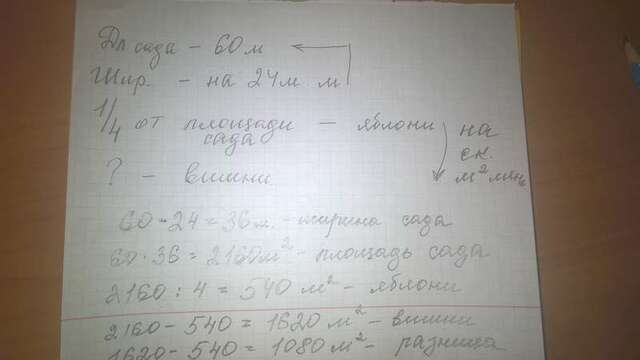 Дл. сада – 60 м
Шир. – на 24 м м
1/4 от площади сада – яблони
на ск. м² меньше
? – вишни
60 - 24 = 36 м. - ширина сада
60 · 36 = 2160 м² - площадь сада
2160 : 4 = 540 м² - яблони
2160 - 540 = 1620 м² - вишни
1620 - 540 = 1080 м² - разница